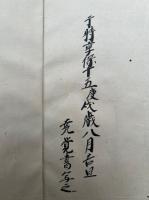 于時享保十五庚戌歳八月吉旦
堯覚書写之